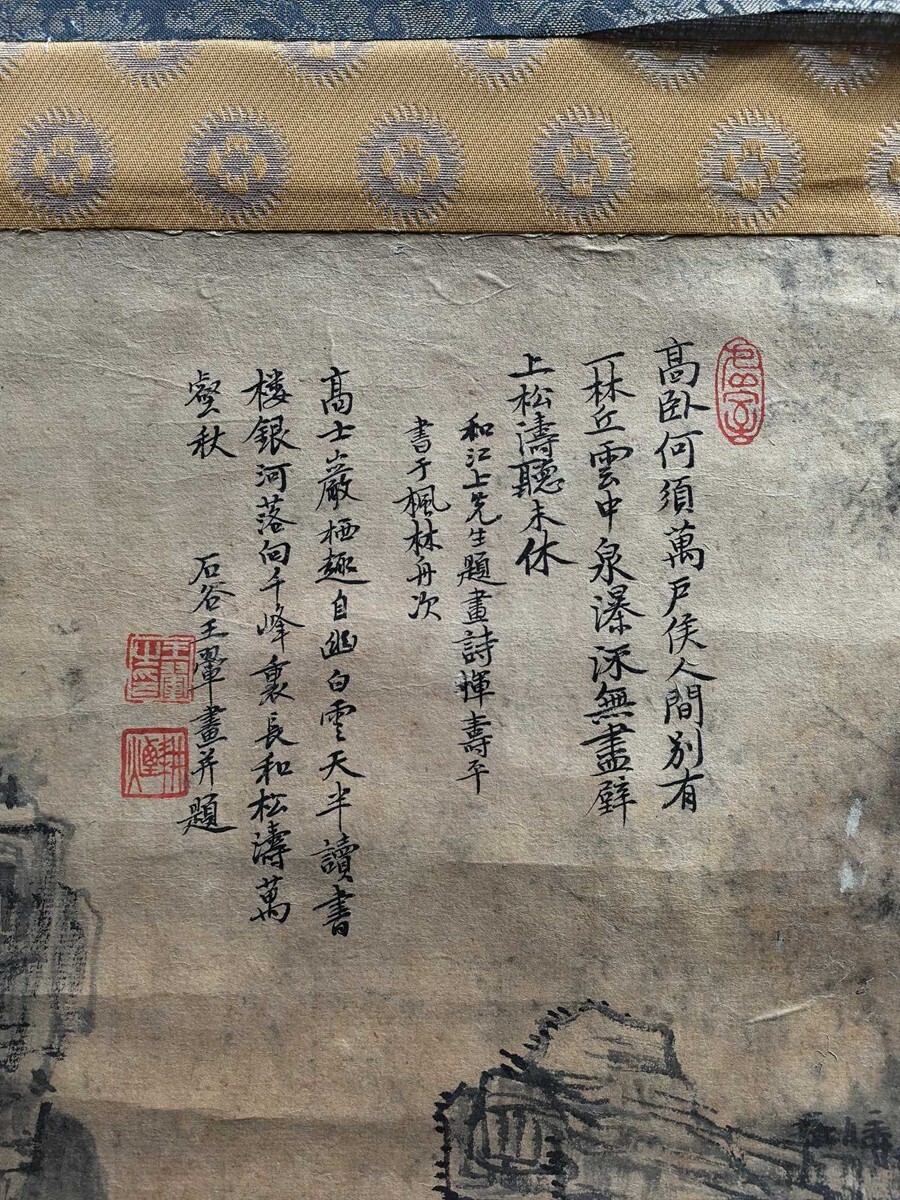 高卧何須萬戶侯人間別有
一林丘雲中泉瀑深無盡壁
上松濤聽未休
和江上先生題畫詩惲壽平
書于楓林舟次
高士巖栖趣自幽白雲天半讀書
楼銀河落向千峰裏長和松濤萬
壑秋
石谷王翬畫并題